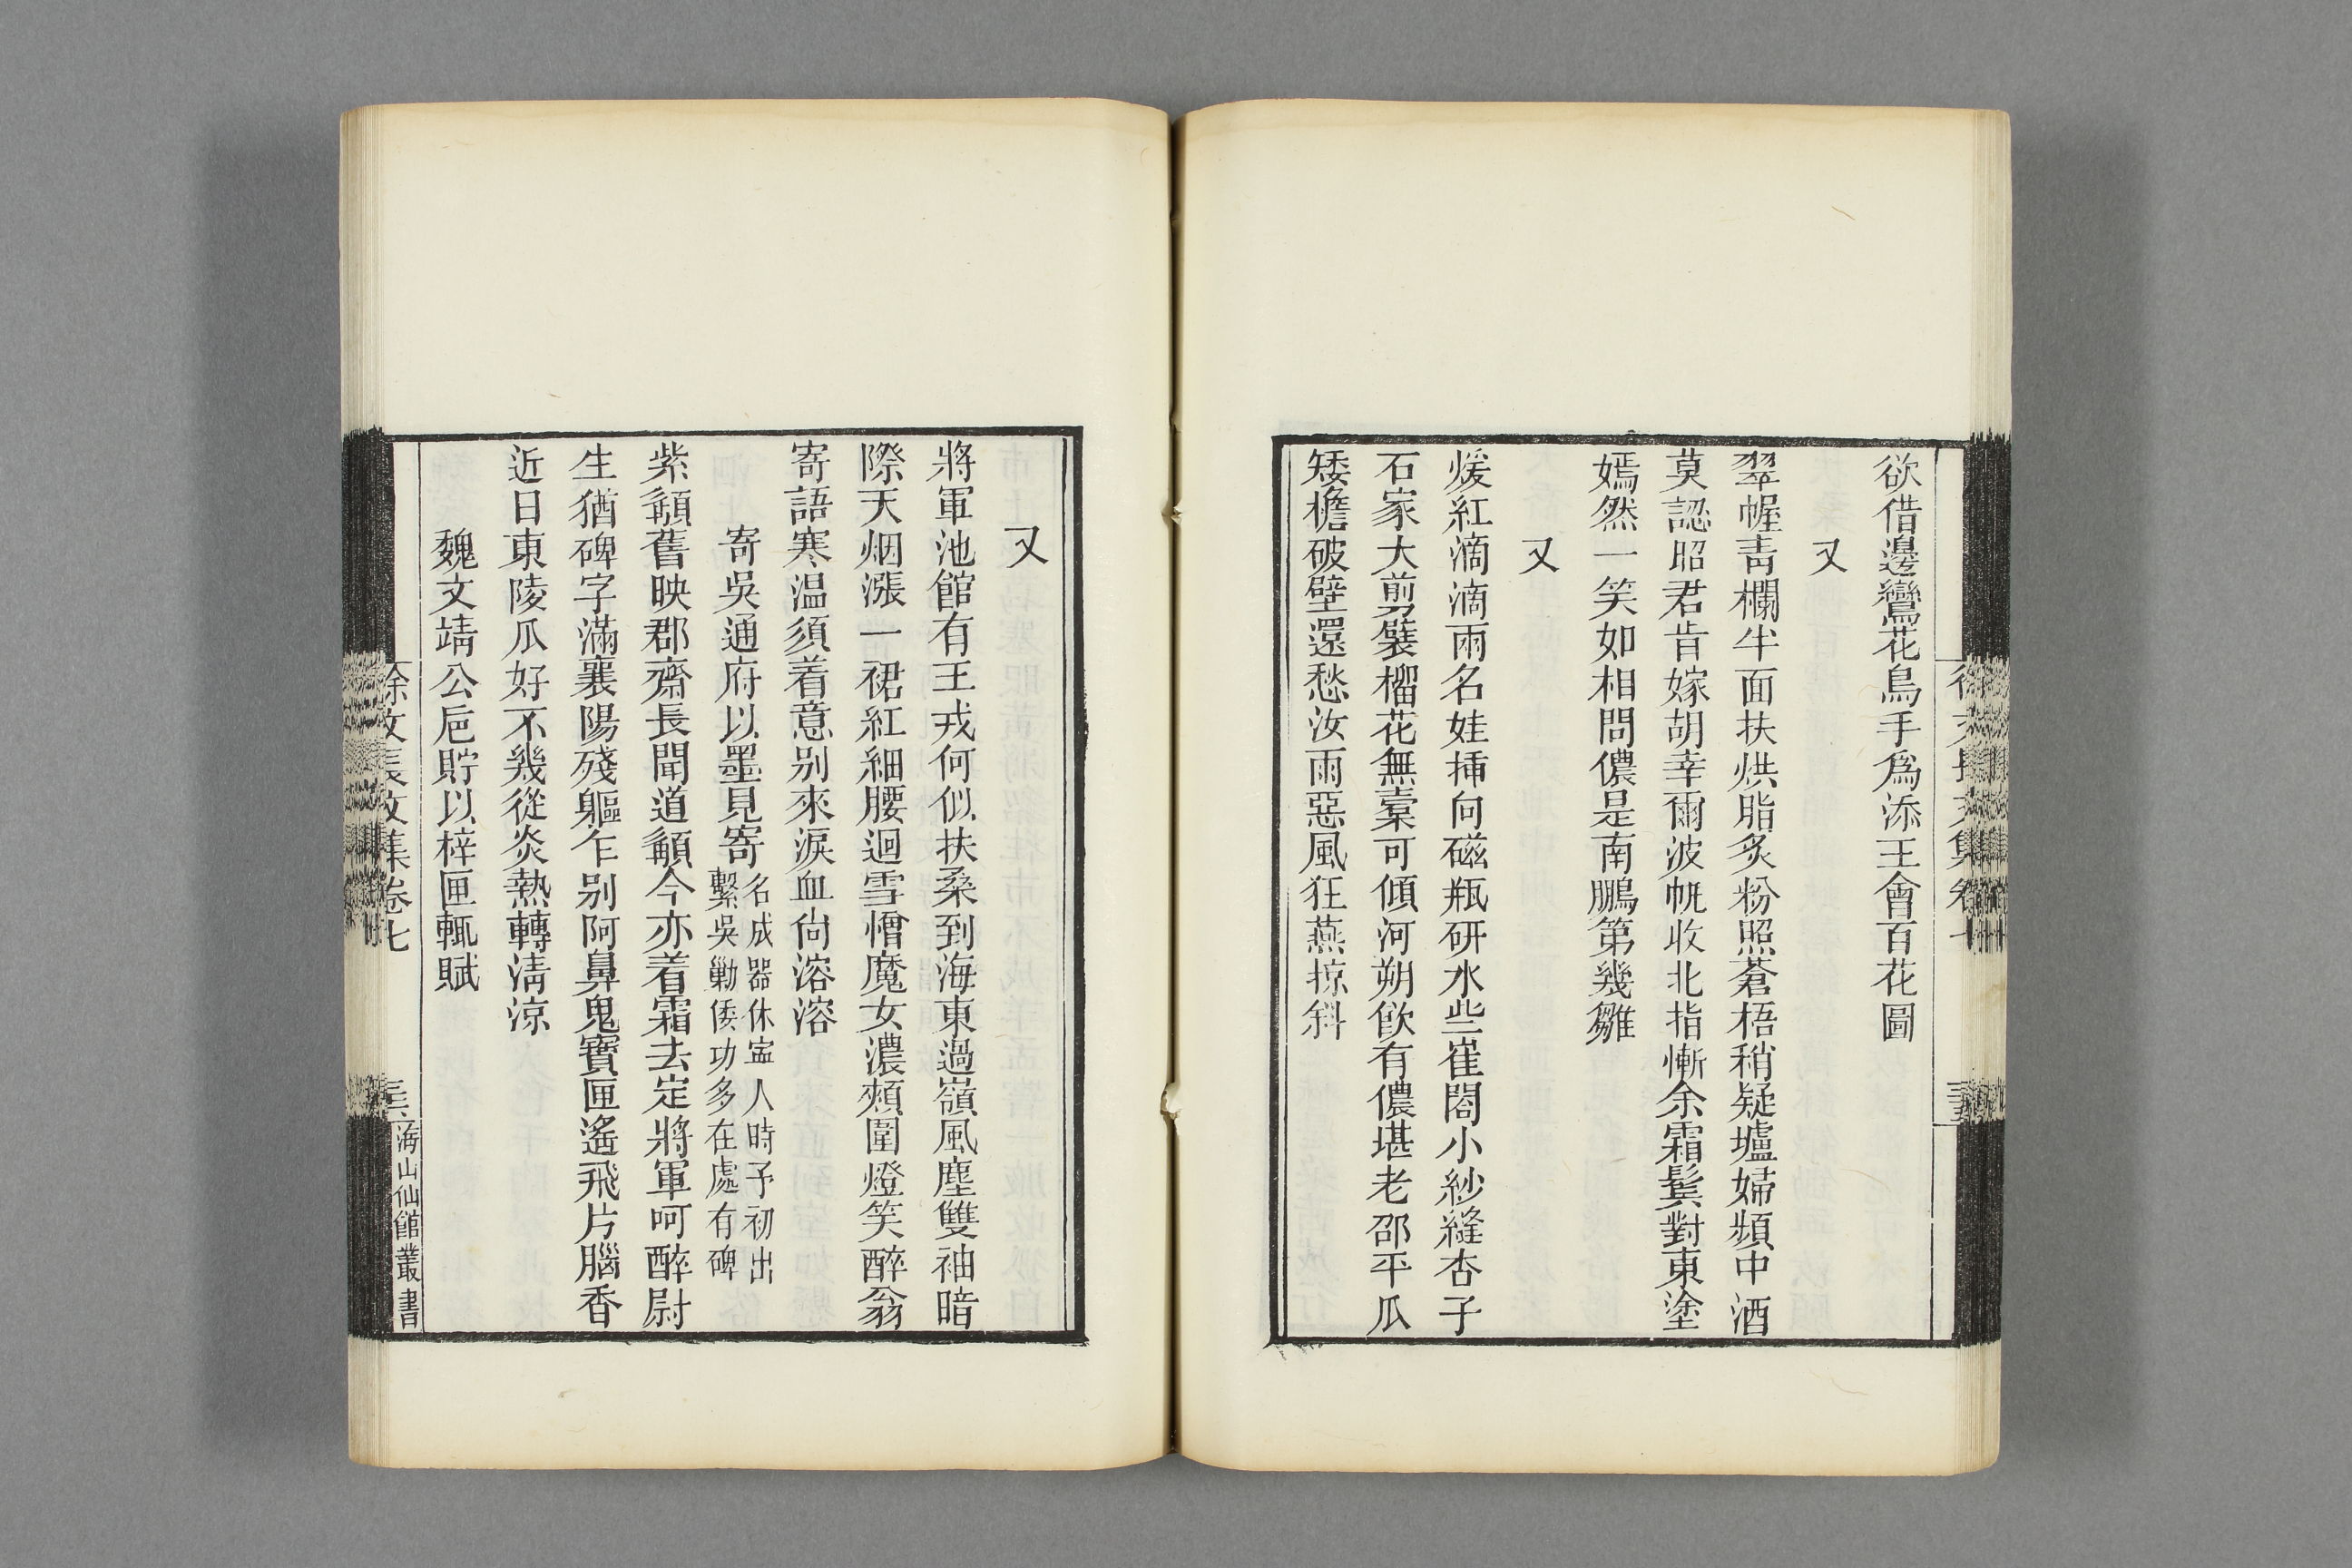 欲借邊鸞花鳥手爲添王會百花圖
又
翠幄靑欄半面扶烘脂炙粉照蒼梧稍疑壚婦頻中酒
莫認昭君肯嫁胡幸爾波帆收北指慚余霜鬓對東塗
嫣然一笑如相問儂是南鵬第幾雛
又
煖紅滴滴雨名娃揷向磁瓶硏水些崔閤小紗縫杏子
石家大剪襞榴花無槖可傾河朔飮有儂堪老邵平瓜
矮檐破壁還愁汝雨惡風狂燕掠斜
又
將軍池館有王戎何似扶桑到海東過嶺風塵雙袖暗
際天烟漲一裙紅細腰迴雪憎魔女濃頰圍燈笑醉翁
寄語寒温須着意别來淚血尙溶溶
寄吳通府以墨見寄名成器休寍人時予初出
繫吳勦倭功多在處有碑
紫顲舊映郡齋長聞道顲今亦着霜去定將軍呵醉尉
生猶碑字滿襄陽殘軀乍别阿鼻鬼寶匣遙飛片腦香
近日東陵瓜好不幾從炎熱轉淸涼
魏文靖公巵貯以梓匣輒賦
徐文長文集卷七
海山仙館叢書